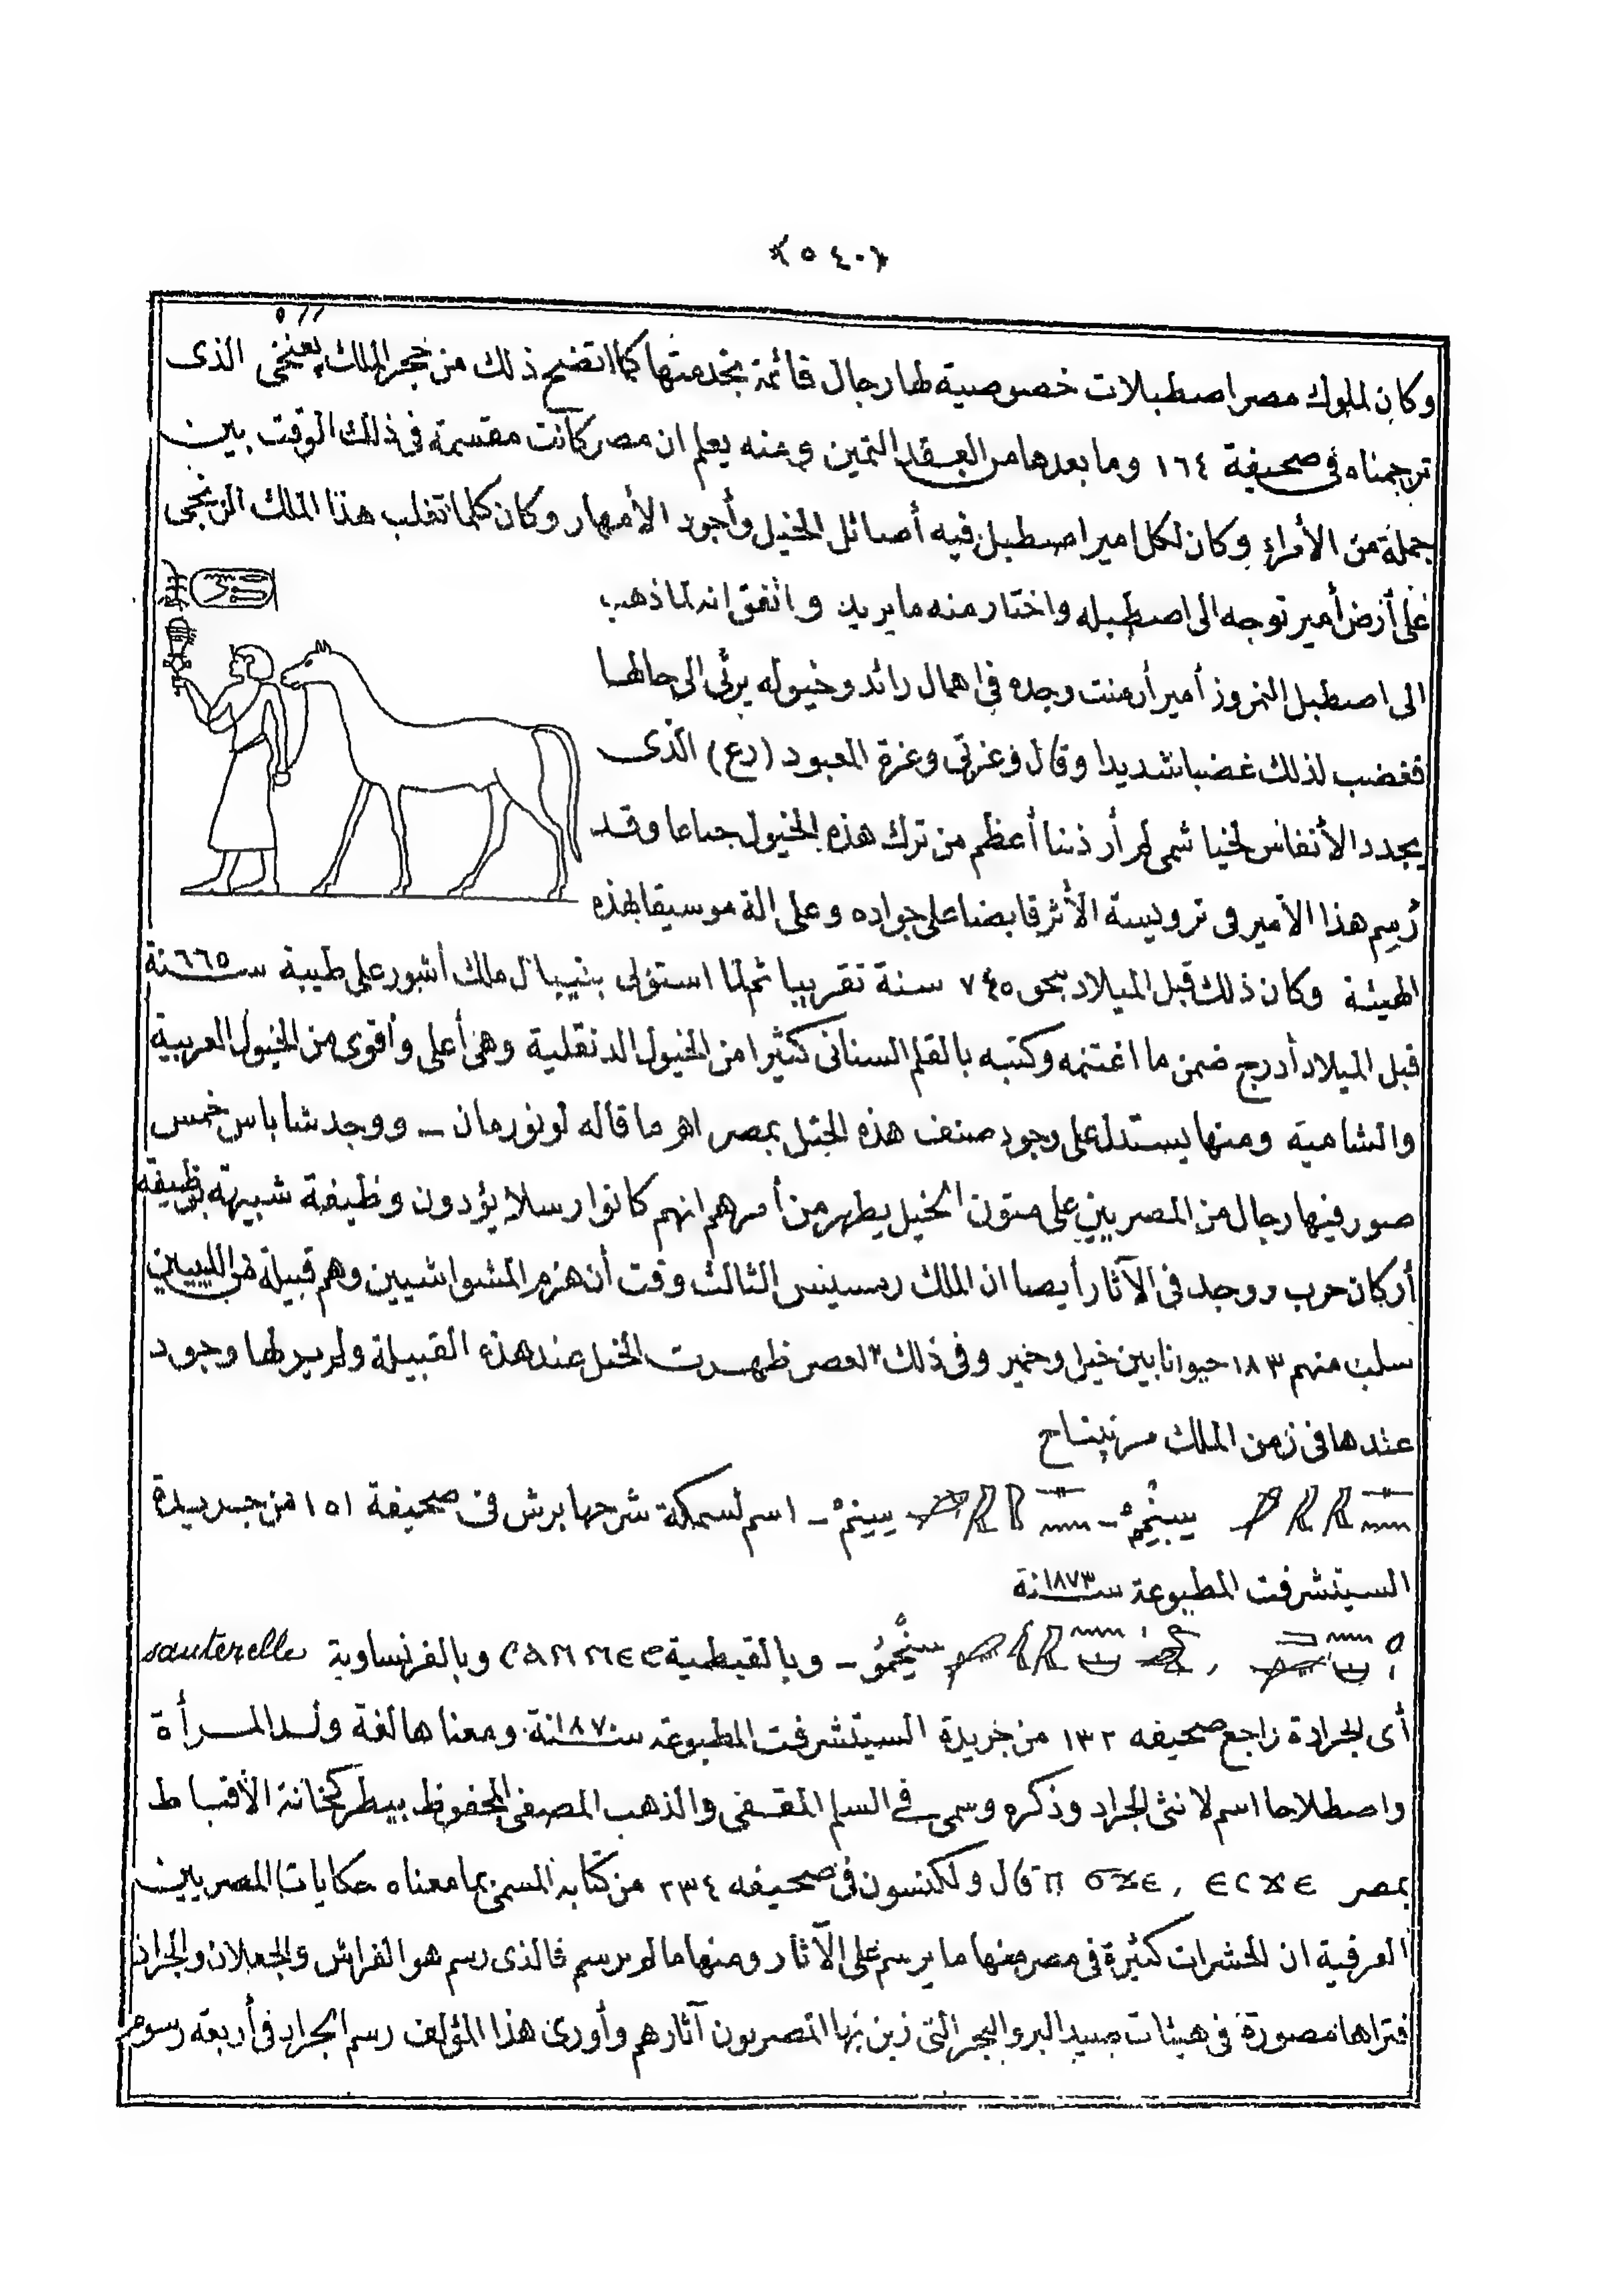 ﴿٥٤٠﴾
وكان لملوك مصر اصطبلات خصوصية لها رجال قائمة بخدمتها كما اتضح ذلك من حجر الملك پعنخى الذى
ترجمناه فى صحيفة ١٦٤ وما بعدها من العقد الثمين ومنه يعلم ان مصر كانت مقسمة فى ذلك الوقت بين
جملة من الأمراء وكان لكل امير اصطبل فيه أصائل الخيل وأجود الأمهار وكان كلما تغلب هذا الملك الزنجى
على أرض أمير توجه الى اصطبله واختار منه ما يريد واتفق انه لما ذهب
الى اصطبل النمروز أمير أرمنت وجده فى اهمال زائد وخيوله يرثى الى حالها
فغضب لذلك غضبا شديدا وقال وعزتى وعزة المعبود (رع) الذى
يجدد الأنفاس لخياشمى لم أر ذنبا أعظم من ترك هذه الخيول جياعا وقد
رسم هذا الأمير فى ترويسة الأثر قابضا على جواده وعلى الة موسيقا بهذه
الهيئة وكان ذلك قبل الميلاد بنحو ٧٤٥ سنة تقريبا ثم لما استولى بنيبال ملك أشور على طيبة سنة ٦٦٥
قبل الميلاد أدرج ضمن ما اغتنمه وكتبه بالقلم السنانى كثيرا من الخيول الدنقلية وهى أعلى وأقوى من الخيول العربية
والشامية ومنها يستدل على وجود صنف هذه الخيل بمصر اهـ ما قاله لونورمان ــ ووجد شاباس خمس
صور فيها رجال من المصريين على متون الخيل يظهر من أمرهم انهم كانوا رسلا يؤدون وظيفة شبيهة بوظيفة
أركان حرب ووجد فى الآثار أيضا ان الملك رمسيس الثالث وقت أن هزم المشواشيين وهم قبيلة من الليبيين
سلب منهم ١٨٣ حيوانا بين خيل وحمير وفى ذلك العصر ظهرت الخيل عند هذه القبيلة ولم ير لها وجود
عندها فى زمن الملك مرنپتاح
ــ اسم لسمكة شرحها برش فى صحيفة ١٥١ من جريدة
السيتشرفت المطبوعة سنة ١٨٧٣
ــ وبالقبطية ⲥⲁⲛⲛⲉϩ وبالفرنساوية sauterelle
أى الجرادة راجع صحيفه ١٣٢ من جريدة السيتشرفت المطبوعة سنة ١٨٧٠ ومعناها لغة ولد المرأة
واصطلاحا اسم لانثى الجراد وذكره وسمى فے السلم المقفى والذهب المصفى المحفوظ ببيطركخانة الأقباط
بمصر ⲉⲥϫⲉ , ⲡ ϭϫⲉ قال ولكنسون فى صحيفه ٢٣٤ من كتابه المسمى بما معناه حكايات المصريين
العرفية ان الحشرات كثيرة فى مصر منها ما يرسم على الآثار ومنها ما لم يرسم فالذى رسم هو الفراش والجعلان والجراد
فتراها مصورة فى هيئات صيد البر والبحر التى زين بها المصريون آثارهم وأورى هذا المؤلف رسم الجراد فى أربعة رسوم